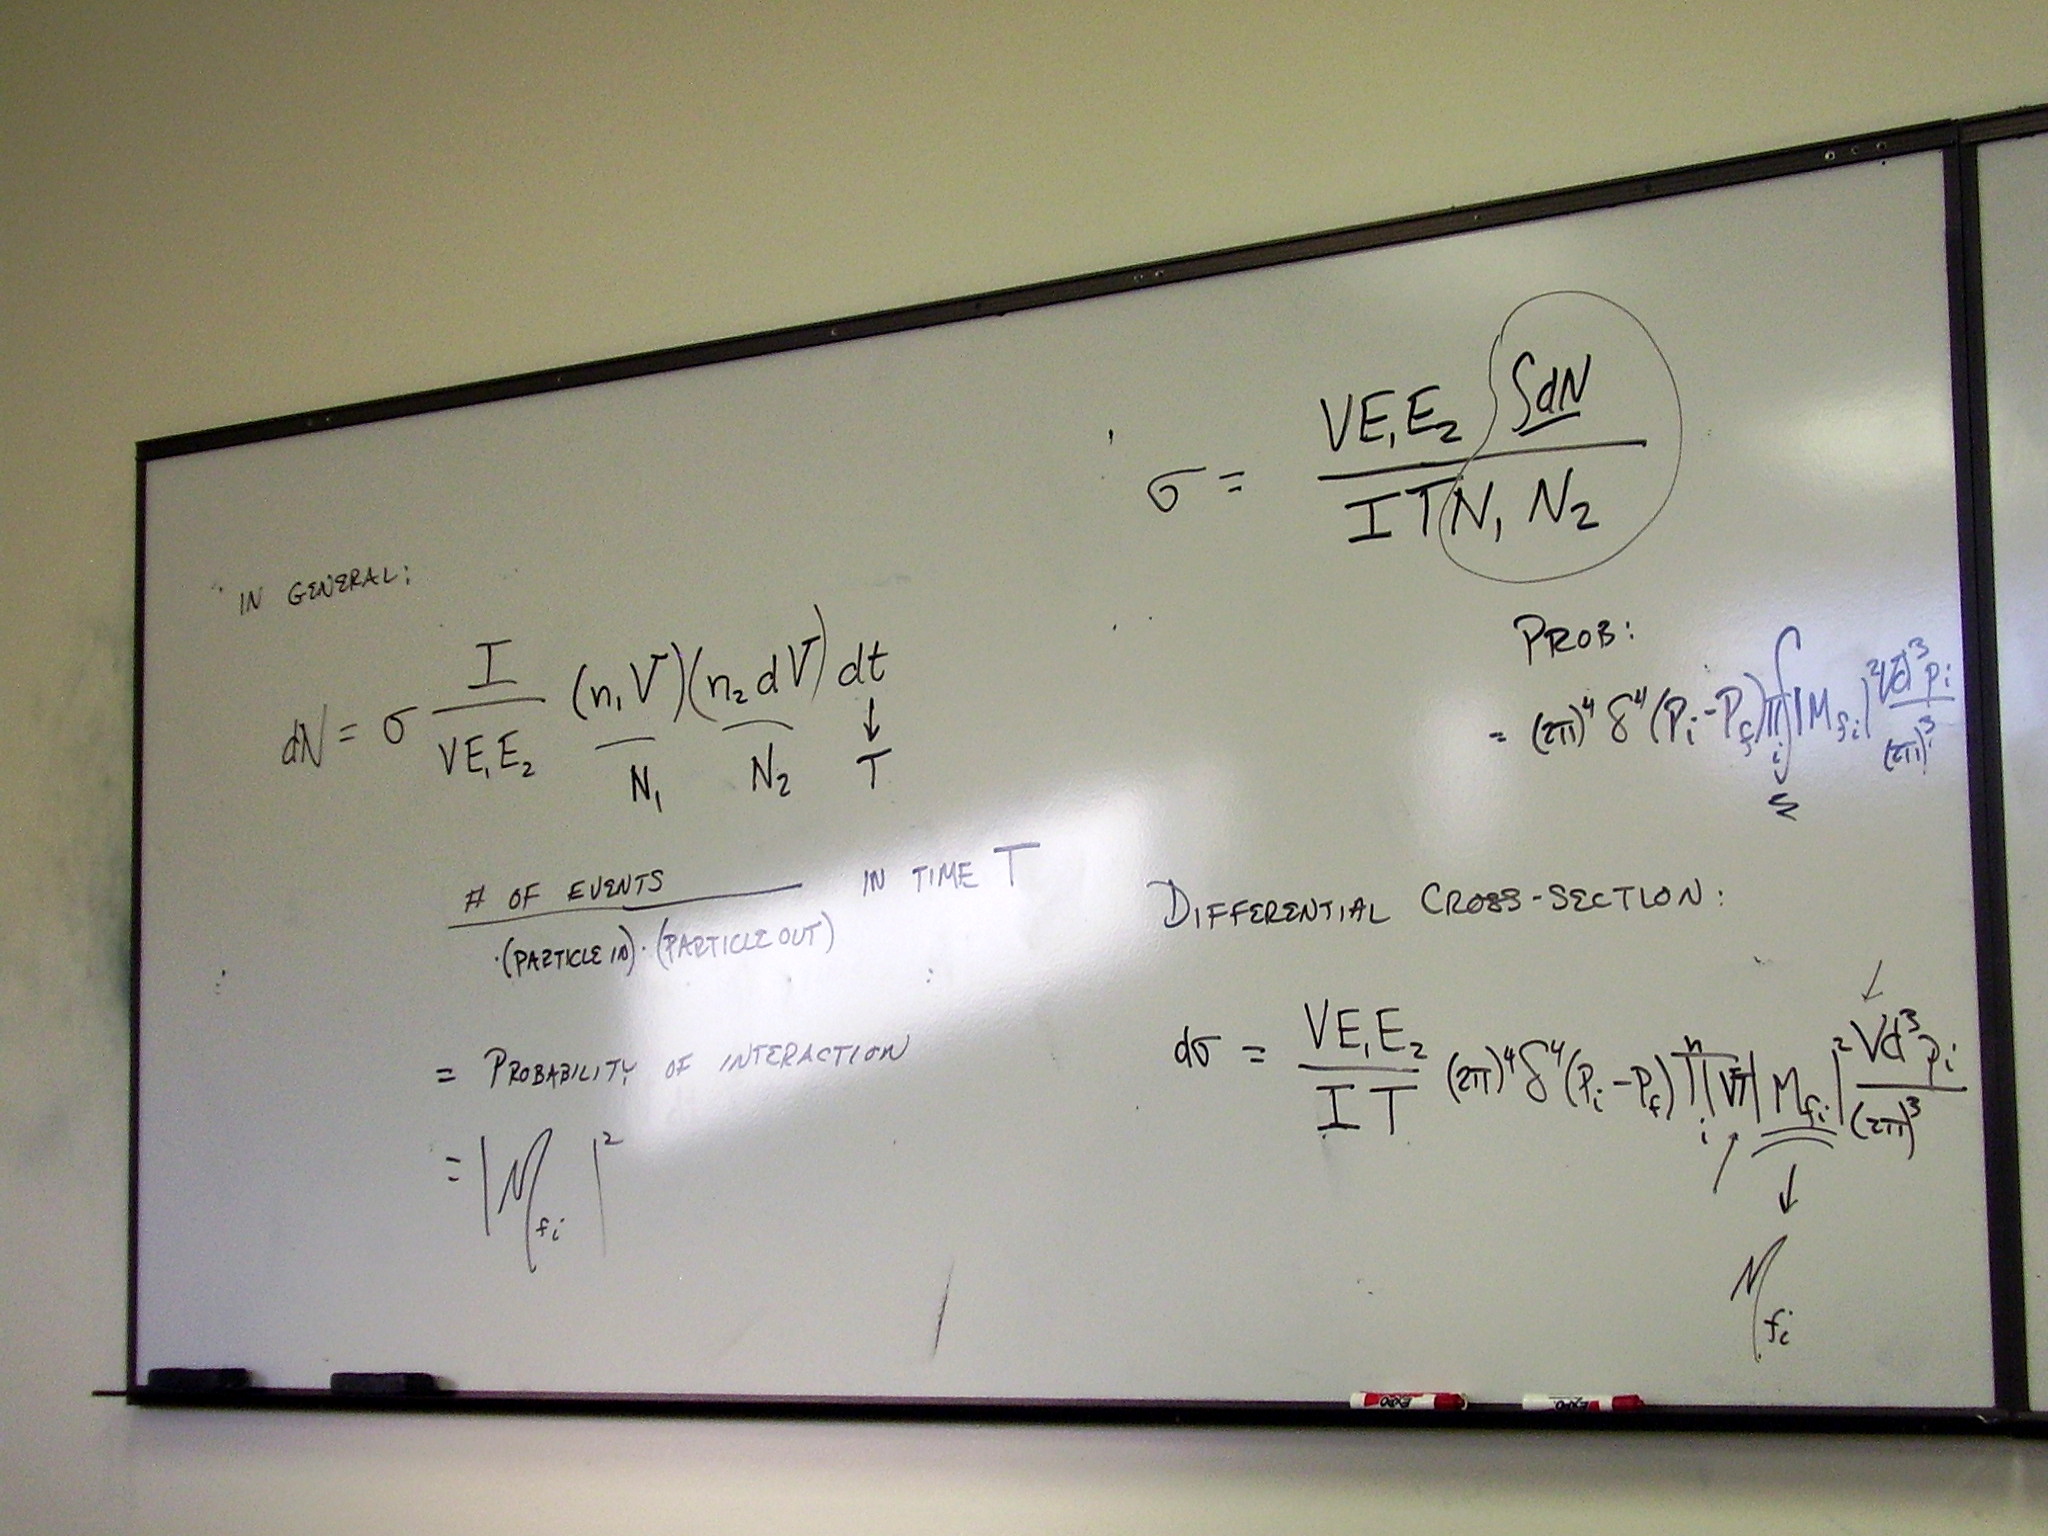 IN GENERAL:
dN = σ I / VE₁E₂ (n₁V)(n₂dV) dt
N₁ N₂ ↓ T
# OF EVENTS / (PARTICLE IN)·(PARTICLE OUT) IN TIME T
= PROBABILITY OF INTERACTION
= |M_fi|²
σ = VE₁E₂ ∫dN / I T N₁ N₂
PROB:
= (2π)⁴ δ⁴(P_i - P_f) ∏_i ∫ |M_fi|² Vd³p_i / (2π)³
DIFFERENTIAL CROSS-SECTION:
dσ = VE₁E₂ / I T (2π)⁴ δ⁴(P_i - P_f) ∏_i^n |M_fi|² Vd³p_i / (2π)³
↓
M_fi
EXPO
EXPO